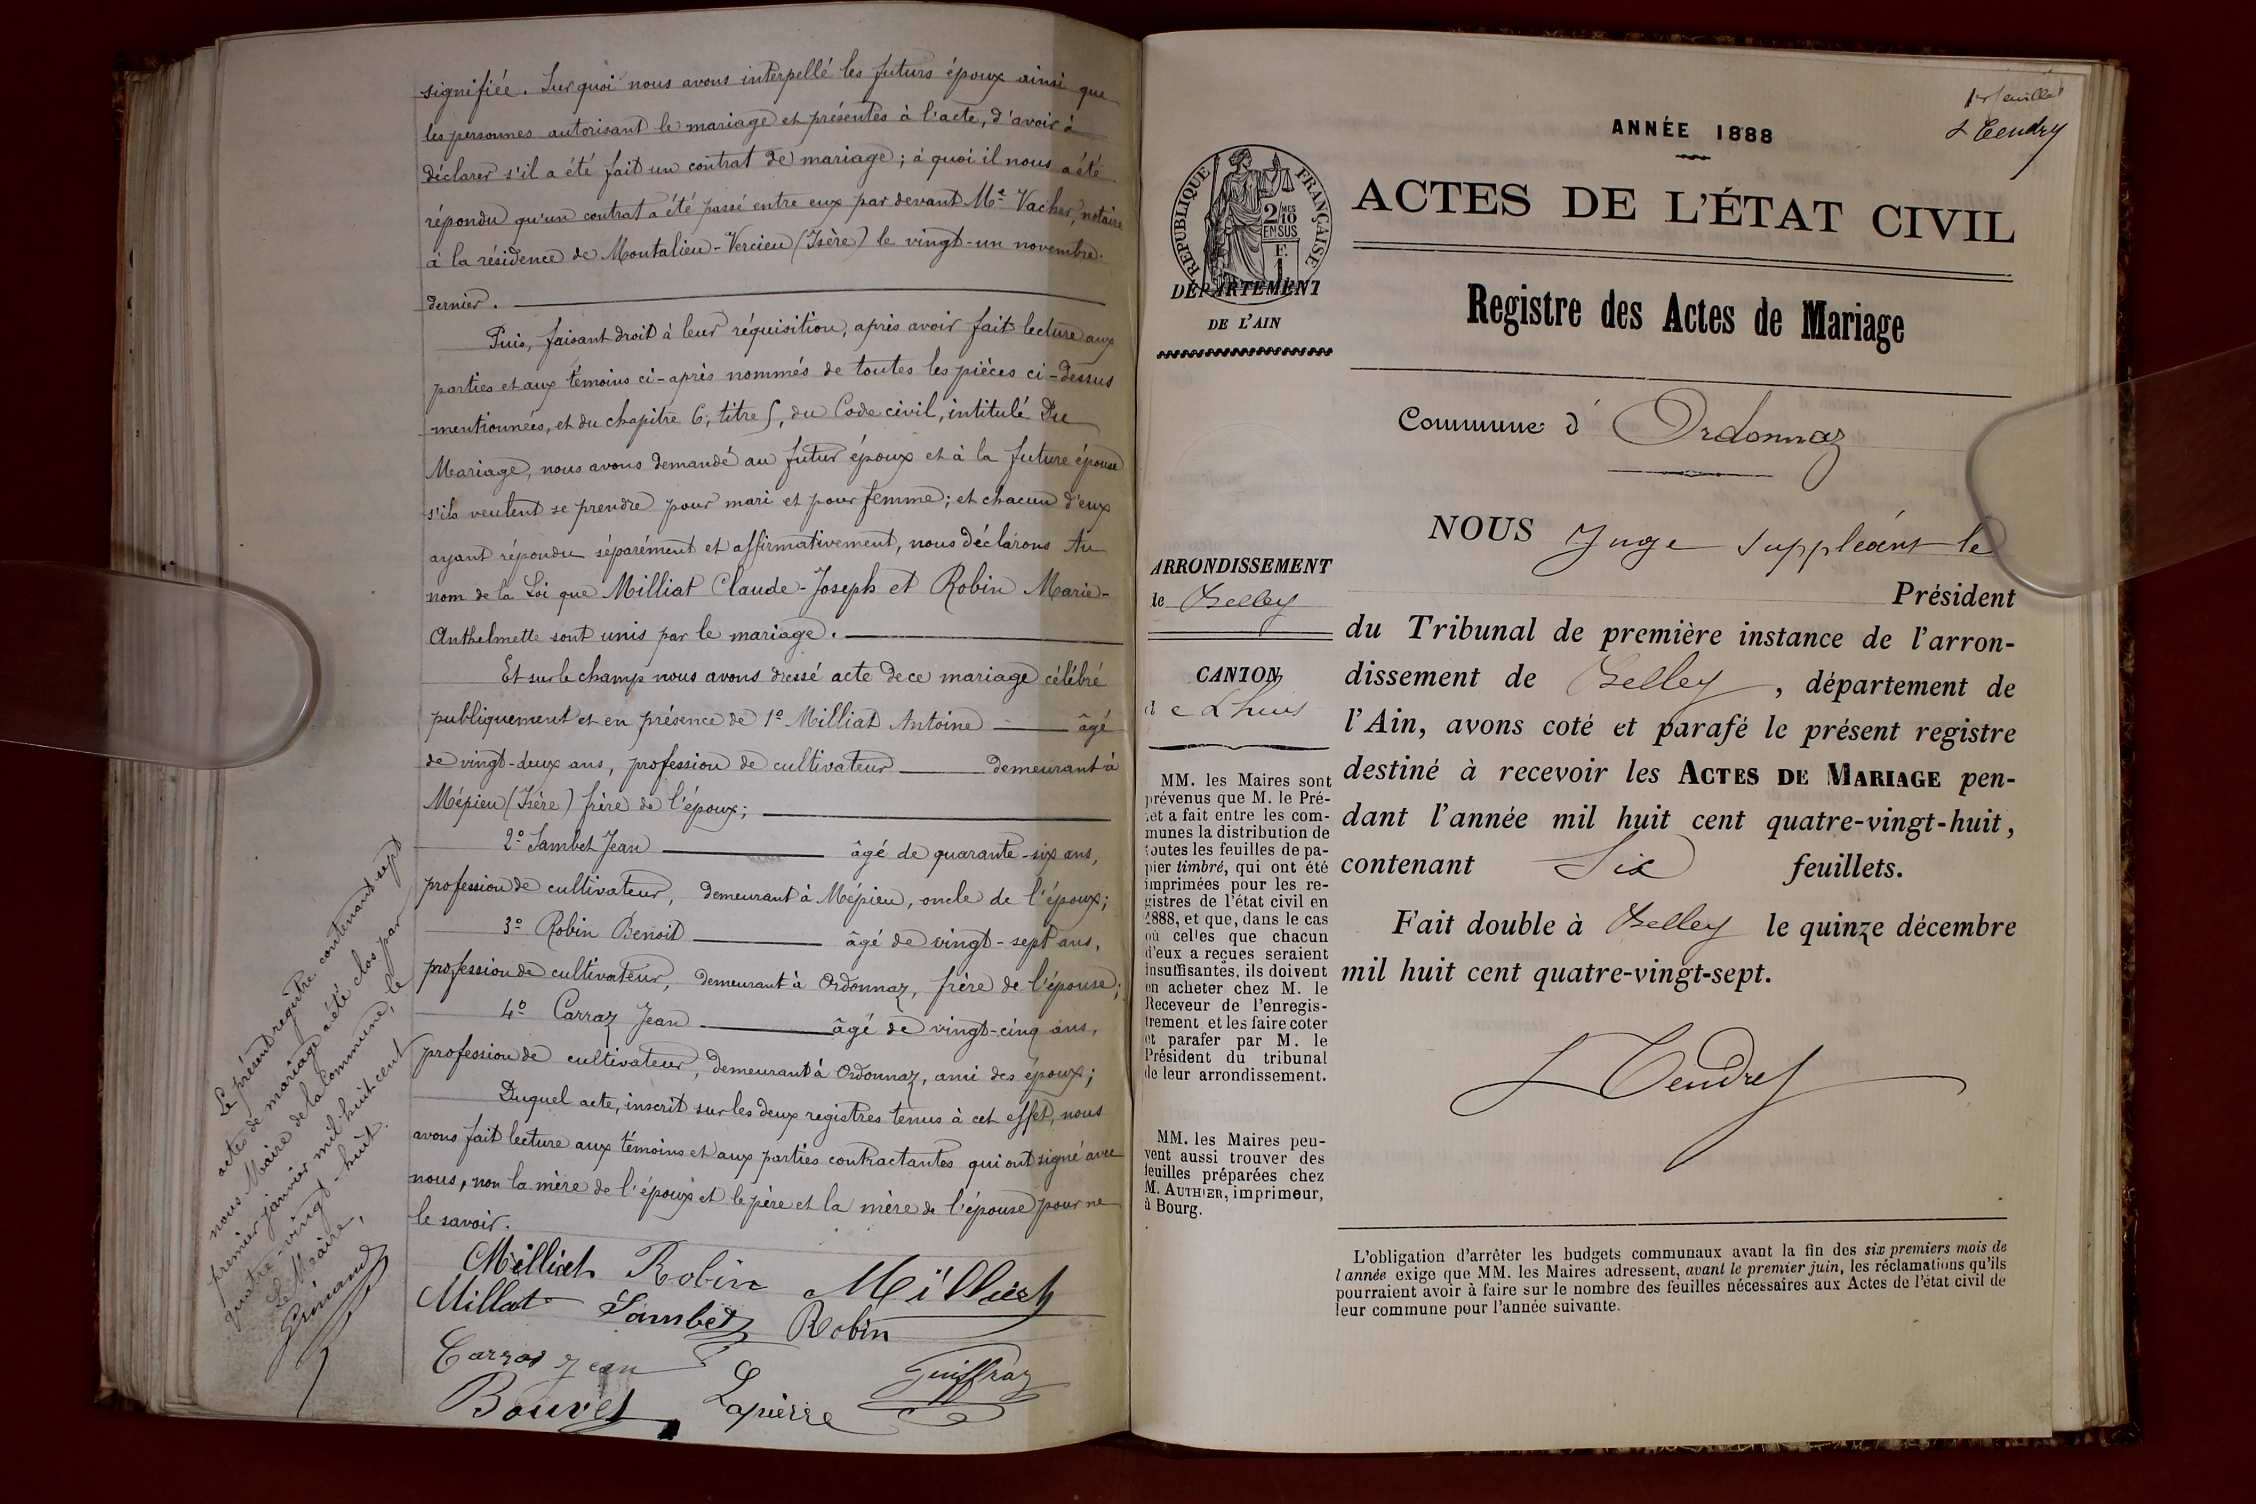 signifiée. Sur quoi nous avons interpellé les futurs époux ainsi que
les personnes autorisant le mariage et présentes à l'acte, d'avoir à
déclarer s'il a été fait un contrat de mariage ; à quoi il nous a été
répondu qu'un contrat a été passé entre eux par devant Me Vacher, notaire
à la résidence de Montalieu-Vercieu (Isère) le vingt-un novembre
dernier.
Puis, faisant droit à leur réquisition, après avoir fait lecture aux
parties et aux témoins ci-après nommés de toutes les pièces ci-dessus
mentionnées, et du chapitre 6, titre 5, du Code civil, intitulé Du
Mariage, nous avons demandé au futur époux et à la future épouse
s'ils veulent se prendre pour mari et pour femme ; et chacun d'eux
ayant répondu séparément et affirmativement, nous déclarons Au
nom de la Loi que Milliat Claude-Joseph et Robin Marie-
Anthelmette sont unis par le mariage.
Et sur le champ nous avons dressé acte de ce mariage célébré
publiquement et en présence de 1º Milliat Antoine âgé
de vingt-deux ans, profession de cultivateur demeurant à
Mépieu (Isère) frère de l'époux ;
2º Sambet Jean âgé de quarante-six ans,
profession de cultivateur, demeurant à Mépieu, oncle de l'époux ;
3º Robin Benoit âgé de vingt-sept ans,
profession de cultivateur, demeurant à Ordonnaz, frère de l'épouse ;
4º Carraz Jean âgé de vingt-cinq ans,
profession de cultivateur, demeurant à Ordonnaz, ami des époux ;
Duquel acte, inscrit sur les deux registres tenus à cet effet, nous
avons fait lecture aux témoins et aux parties contractantes qui ont signé avec
nous, non la mère de l'époux et le père et la mère de l'épouse pour ne
le savoir.
Milliat Robin Milliat
Millat Sambet Robin
Carraz Jean Guiffraz
Bouvet Lapierre
Le présent registre contenant sept
actes de mariage a été clos par
nous Maire de la Commune, le
premier janvier mil huit cent
quatre-vingt-huit.
Le Maire,
1er feuillet
L Tendry
ANNÉE 1888
RÉPUBLIQUE FRANÇAISE
2/10 MES
EN SUS
1 F.
ACTES DE L'ÉTAT CIVIL
DÉPARTEMENT
DE L'AIN
Registre des Actes de Mariage
Commune d' Ordonnaz
ARRONDISSEMENT
de Belley
CANTON
de Lhuis
NOUS Juge suppléant le
Président
du Tribunal de première instance de l'arron-
dissement de Belley, département de
l'Ain, avons coté et parafé le présent registre
destiné à recevoir les ACTES DE MARIAGE pen-
dant l'année mil huit cent quatre-vingt-huit,
contenant Six feuillets.
Fait double à Belley le quinze décembre
mil huit cent quatre-vingt-sept.
L Tendry
MM. les Maires sont
prévenus que M. le Pré-
fet a fait entre les com-
munes la distribution de
toutes les feuilles de pa-
pier timbré, qui ont été
imprimées pour les re-
gistres de l'état civil en
1888, et que, dans le cas
où celles que chacun
d'eux a reçues seraient
insuffisantes, ils doivent
en acheter chez M. le
Receveur de l'enregis-
trement et les faire coter
et parafer par M. le
Président du tribunal
de leur arrondissement.
MM. les Maires peu-
vent aussi trouver des
feuilles préparées chez
M. AUTHIER, imprimeur,
à Bourg.
L'obligation d'arrêter les budgets communaux avant la fin des six premiers mois de
l'année exige que MM. les Maires adressent, avant le premier juin, les réclamations qu'ils
pourraient avoir à faire sur le nombre des feuilles nécessaires aux Actes de l'état civil de
leur commune pour l'année suivante.